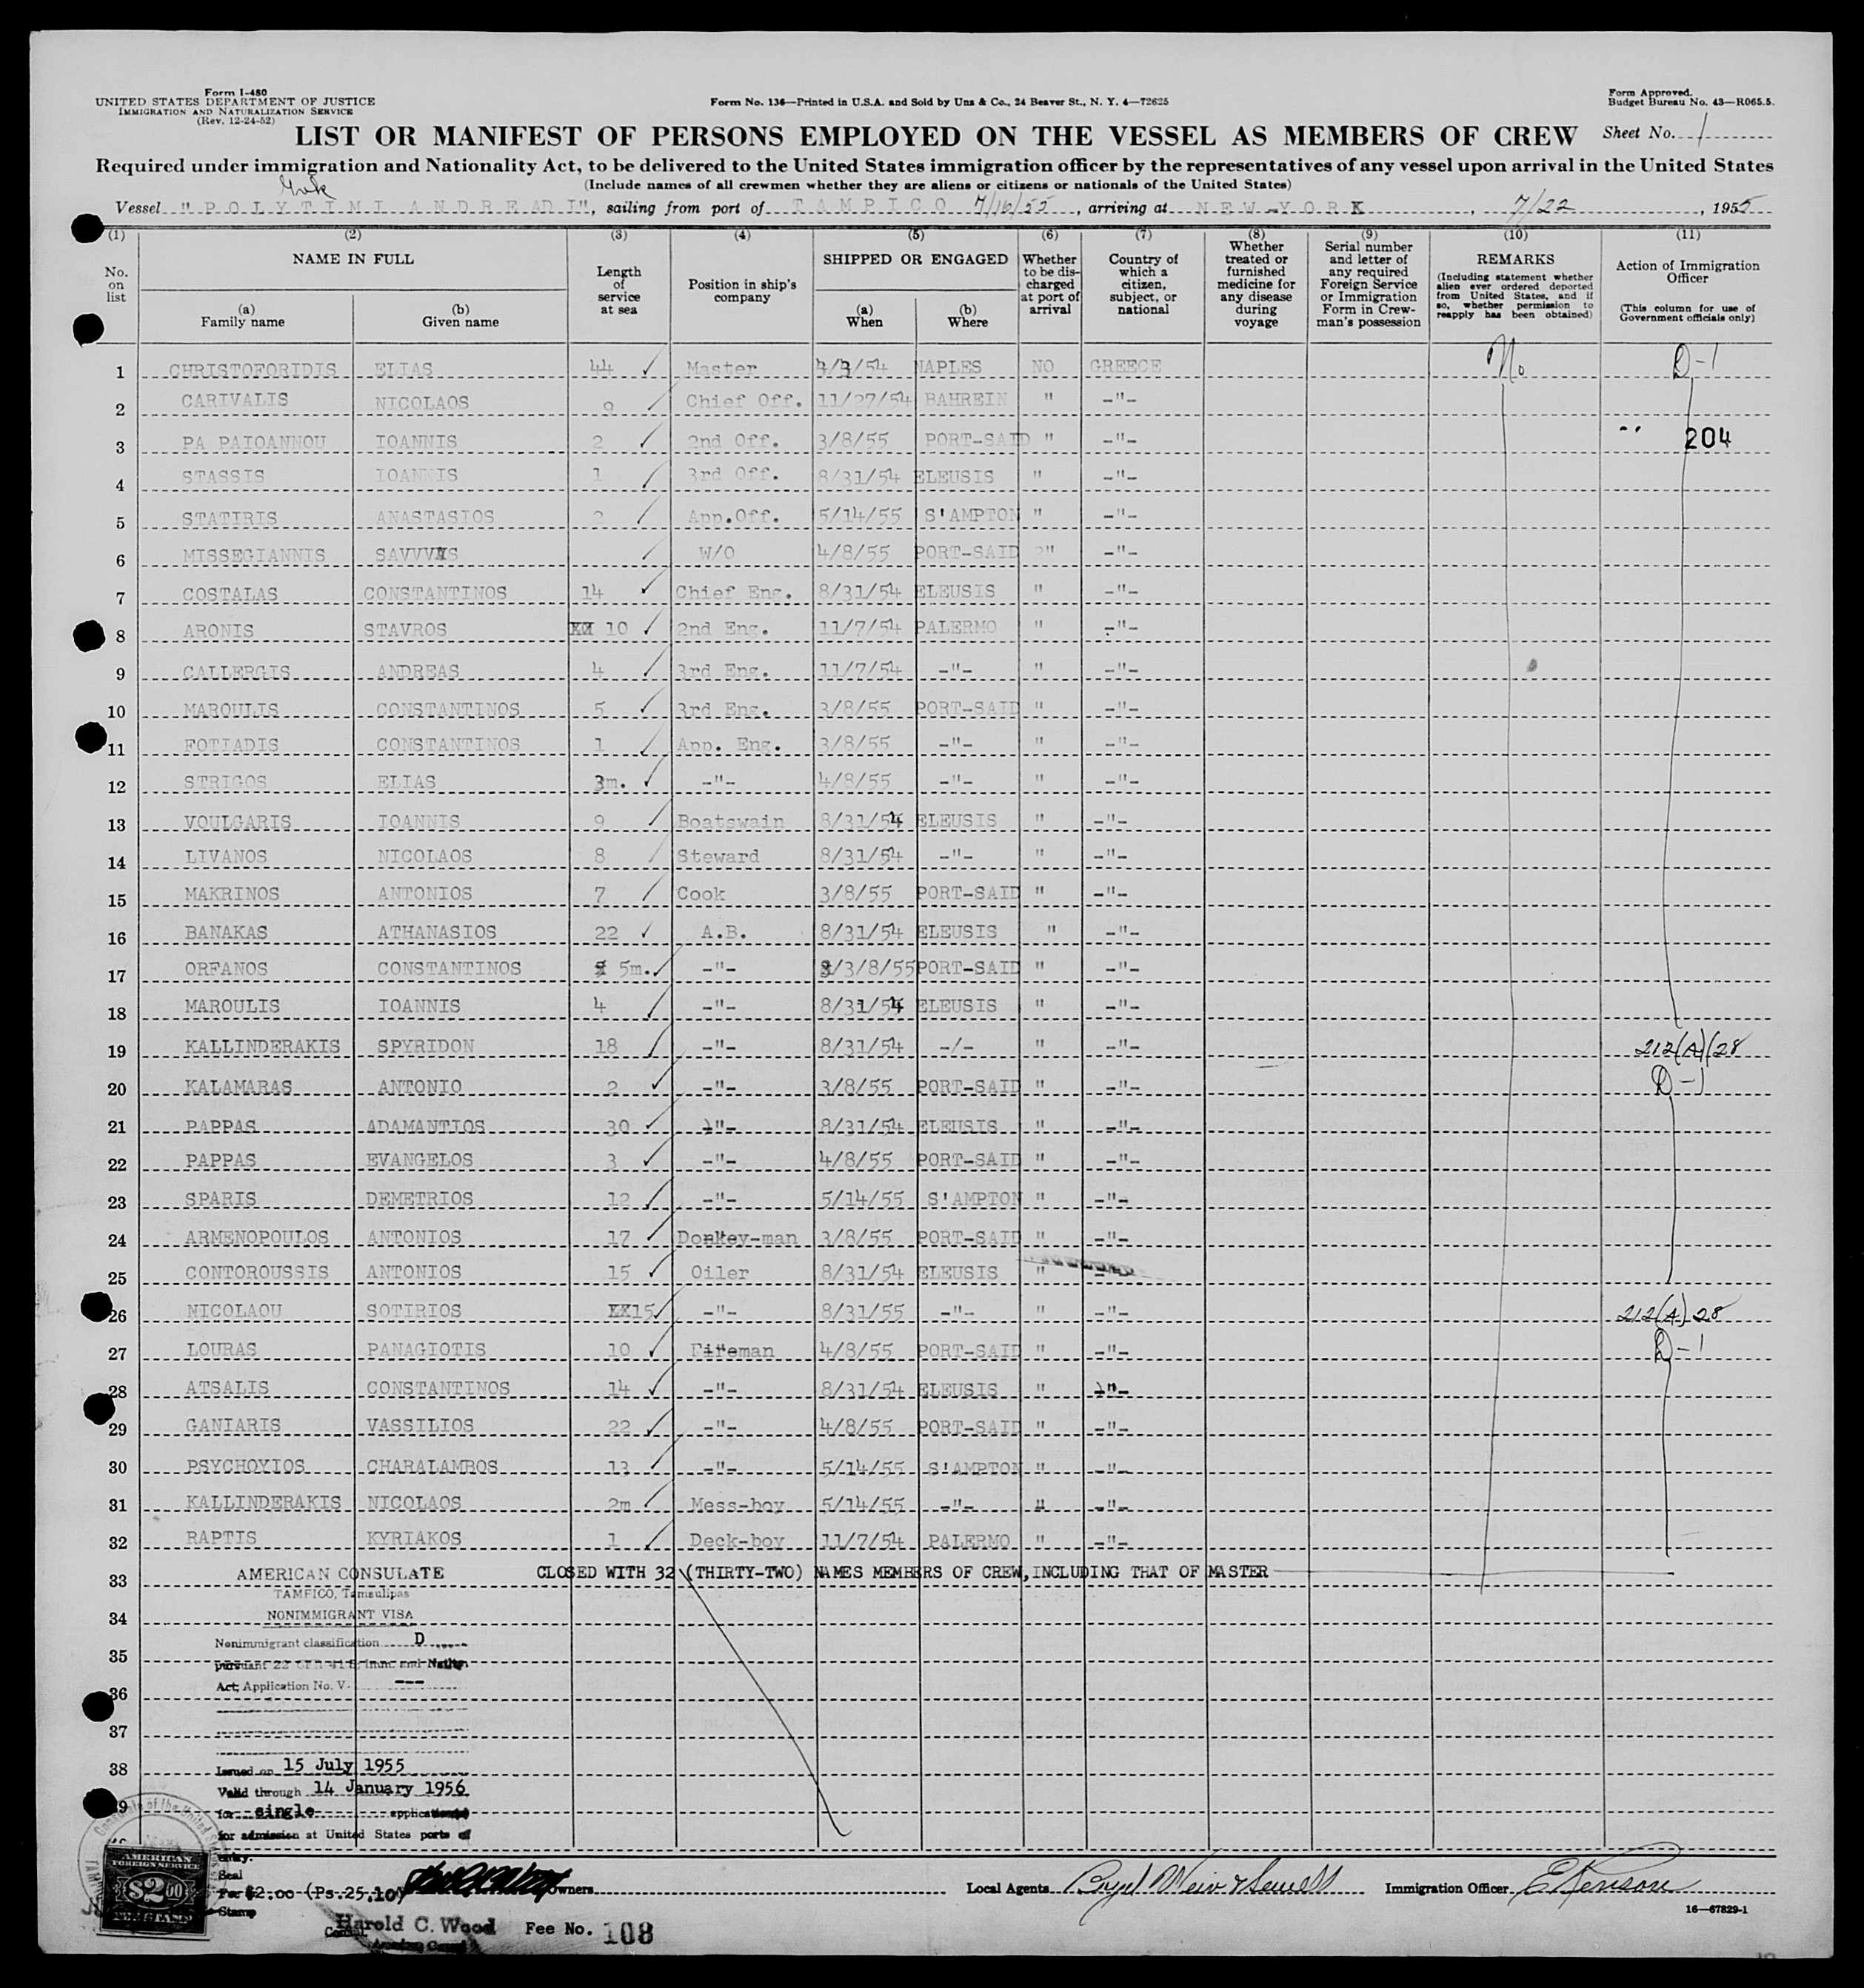 Form I-480
UNITED STATES DEPARTMENT OF JUSTICE
IMMIGRATION AND NATURALIZATION SERVICE
(Rev. 12-24-52)
Form No. 136—Printed in U.S.A. and Sold by Unz & Co., 24 Beaver St., N. Y. 4—72625
Form Approved.
Budget Bureau No. 43—R065.5.
LIST OR MANIFEST OF PERSONS EMPLOYED ON THE VESSEL AS MEMBERS OF CREW
Sheet No. 1
Required under immigration and Nationality Act, to be delivered to the United States immigration officer by the representatives of any vessel upon arrival in the United States
(Include names of all crewmen whether they are aliens or citizens or nationals of the United States)
Vessel "POLYTIMI ANDREADI", sailing from port of TAMPICO 7/16/55, arriving at NEW-YORK, 7/22, 1955
(1) (2) (3) (4) (5) (6) (7) (8) (9) (10) (11)
No. on list
NAME IN FULL
(a) Family name
(b) Given name
Length of service at sea
Position in ship's company
SHIPPED OR ENGAGED
(a) When
(b) Where
Whether to be discharged at port of arrival
Country of which a citizen, subject, or national
Whether treated or furnished medicine for any disease during voyage
Serial number and letter of any required Foreign Service or Immigration Form in Crewman's possession
REMARKS
(Including statement whether alien ever ordered deported from United States, and if so, whether permission to reapply has been obtained)
Action of Immigration Officer
(This column for use of Government officials only)
1 CHRISTOFORIDIS ELIAS 44 Master /54 NAPLES NO GREECE No D-1
2 CARIVALIS NICOLAOS 9 Chief Off. 11/27/54 BAHREIN " -"-
3 PA PAIOANNOU IOANNIS 2 2nd Off. 3/8/55 PORT-SAID " -"- 204
4 STASSIS IOANNIS 1 3rd Off. 8/31/54 ELEUSIS " -"-
5 STATIRIS ANASTASIOS 2 App.Off. 5/14/55 S'AMPTON " -"-
6 MISSEGIANNIS SAVVVAS W/O 4/8/55 PORT-SAID " -"-
7 COSTALAS CONSTANTINOS 14 Chief Eng. 8/31/54 ELEUSIS " -"-
8 ARONIS STAVROS 10 2nd Eng. 11/7/54 PALERMO " -"-
9 CALLERGIS ANDREAS 4 3rd Eng. 11/7/54 -"- " -"-
10 MAROULIS CONSTANTINOS 5 3rd Eng. 3/8/55 PORT-SAID " -"-
11 FOTIADIS CONSTANTINOS 1 App. Eng. 3/8/55 -"- " -"-
12 STRIGOS ELIAS 3m. -"- 4/8/55 -"- " -"-
13 VOULGARIS IOANNIS 9 Boatswain 8/31/54 ELEUSIS " -"-
14 LIVANOS NICOLAOS 8 Steward 8/31/54 -"- " -"-
15 MAKRINOS ANTONIOS 7 Cook 3/8/55 PORT-SAID " -"-
16 BANAKAS ATHANASIOS 22 A.B. 8/31/54 ELEUSIS " -"-
17 ORFANOS CONSTANTINOS 5m. -"- 3/8/55 PORT-SAID " -"-
18 MAROULIS IOANNIS 4 -"- 8/31/54 ELEUSIS " -"-
19 KALLINDERAKIS SPYRIDON 18 -"- 8/31/54 -/- " -"- 212(A)(28
20 KALAMARAS ANTONIO 2 -"- 3/8/55 PORT-SAID " -"- D-1
21 PAPPAS ADAMANTIOS 30 )"- 8/31/54 ELEUSIS " -"-
22 PAPPAS EVANGELOS 3 -"- 4/8/55 PORT-SAID " -"-
23 SPARIS DEMETRIOS 12 -"- 5/14/55 S'AMPTON " -"-
24 ARMENOPOULOS ANTONIOS 17 Donkey-man 3/8/55 PORT-SAID " -"-
25 CONTOROUSSIS ANTONIOS 15 Oiler 8/31/54 ELEUSIS "
26 NICOLAOU SOTIRIOS XX15 -"- 8/31/55 -"- " -"- 212(A) 28
27 LOURAS PANAGIOTIS 10 Fireman 4/8/55 PORT-SAID " -"- D-1
28 ATSALIS CONSTANTINOS 14 -"- 8/31/54 ELEUSIS " )"-
29 GANIARIS VASSILIOS 22 -"- 4/8/55 PORT-SAID " -"-
30 PSYCHOYIOS CHARALAMBOS 13 -"- 5/14/55 S'AMPTON " -"-
31 KALLINDERAKIS NICOLAOS 2m Mess-boy 5/14/55 -"- " -"-
32 RAPTIS KYRIAKOS 1 Deck-boy 11/7/54 PALERMO " -"-
33 AMERICAN CONSULATE CLOSED WITH 32 (THIRTY-TWO) NAMES MEMBERS OF CREW, INCLUDING THAT OF MASTER
TAMPICO, Tamaulipas
34 NONIMMIGRANT VISA
Nonimmigrant classification D
35 pursuant 22 CFR 41.5, Imm. and Natlty.
Act; Application No. V- ---
36
37
38 Issued on 15 July 1955
Valid through 14 January 1956
39 for single application(s)
for admission at United States ports of
entry.
Seal
Fee $2.00 (Ps.25.10) Owners
Stamp
AMERICAN FOREIGN SERVICE
$2.00
FEE STAMP
Local Agents Boyd Weir & Sewell
Immigration Officer
16—67829-1
Harold C. Wood
Consul
Fee No. 108